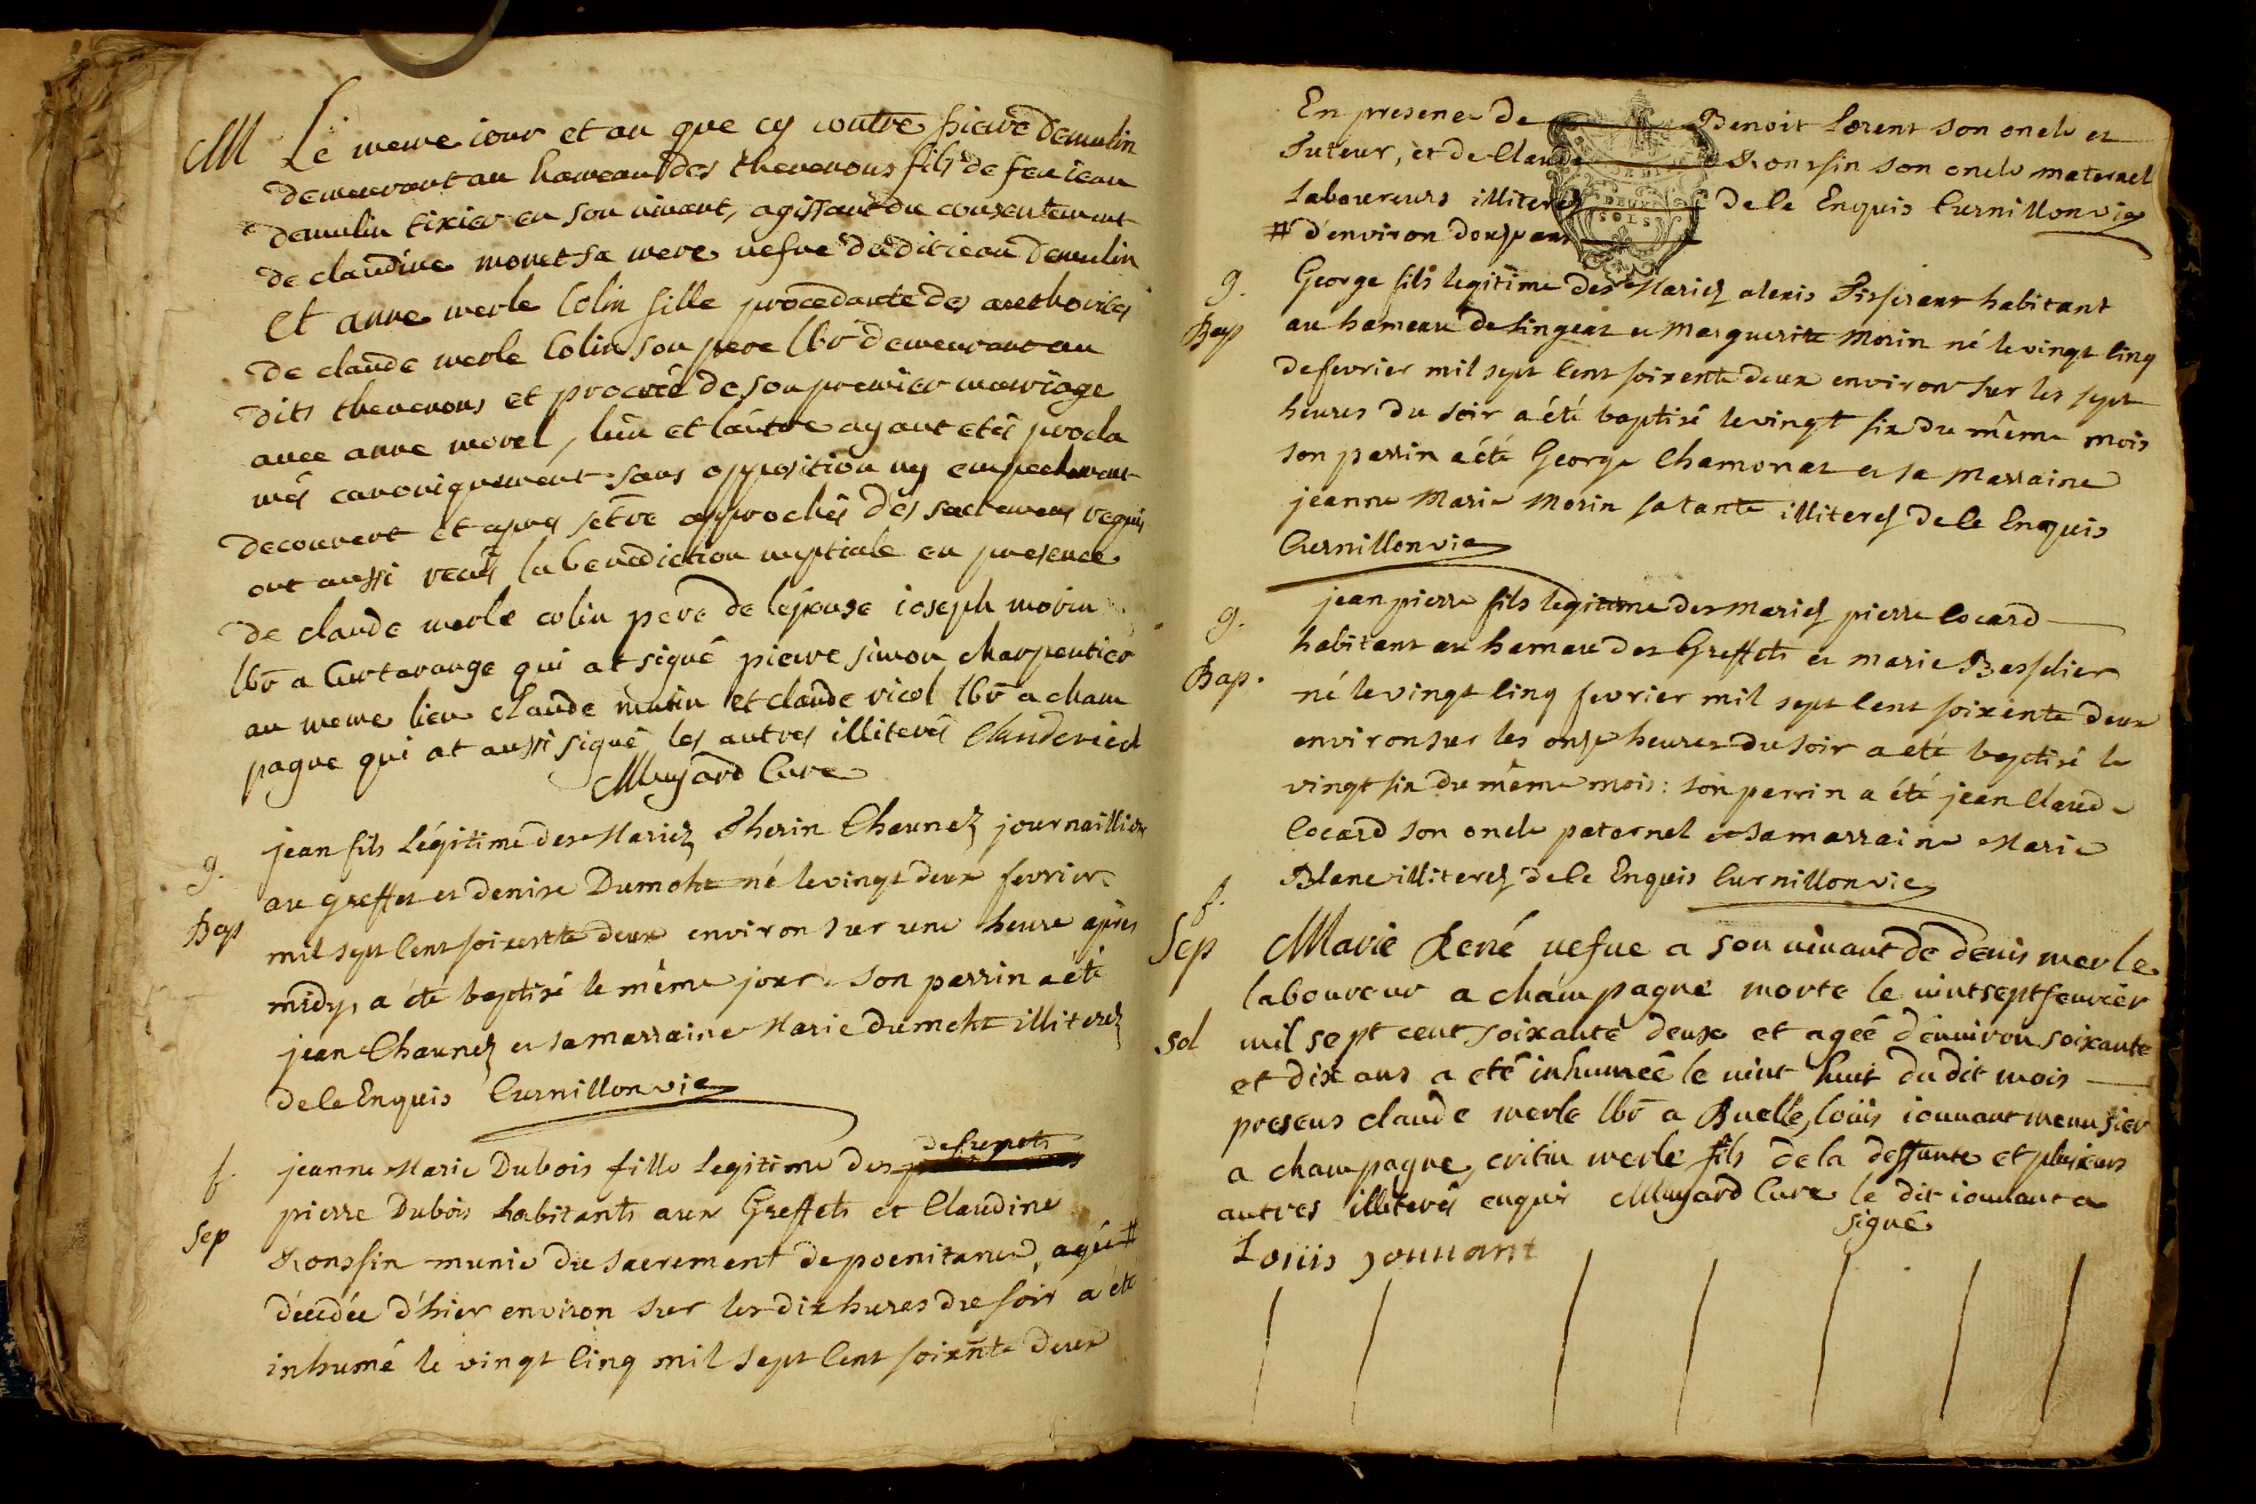 M Le meme iour et an que cy contre pierre Demulin
demeurant au hameau des thevenons fils de feu iean
demulin tixier en son vivant, agissant du consentement
de claudine monet sa mere vefve du dit iean Demulin
Et anne merle Colin fille procedante des authorités
de claude merle Colin son pere lbr demeurant au
dits thevenons et procréé de son premier mariage
avec anne morel, lun et lautre ayant etés procla
més canoniquement sans opposition ny empechement
decouvert et apres setre approchés des sacremens requis
ont aussi recus la benediction nuptiale en presence
de claude merle colin pere de lepouse ioseph morin
lbr a Curtarange qui at signé pierre simon charpentier
au meme lieu claude mutin et claude vicol lbr a cham
pagne qui at aussi signé les autres illiterés Claude vicol
Muyard Cure
g. Bap
jean fils Légitime des Mariez Therin Chaunez journaillier
au greffet et denise Dumoht né le vingt deux fevrier
mil sept Cent soixente deux environ sur une heure apres
midy, a été baptisé le même jour. son parrin a été
jean Chaunez et sa marraine Marie dumoht illiterez
de ce Enquis Curnillon vic
f. Sep
defuncts
jeanne Marie Dubois fille Legitime des
pierre Dubois habitants aux Greffets et Claudine
Ronssin munie du sacrement de poenitance, agée #
décédée d'hier environ sur les dix hures du soir a été
inhumé le vingt Cinq mil sept Cent soixente deux
En presence de Benoit Lorent son oncle et
Tuteur, et de Claude Ronssin son oncle maternel
Laboureurs illiterez de Ce Enquis Curnillon vic
# d'environ douze ans
DEUX SOLS
g. Bap
George fils legitime des Mariez alexis Tisserant habitant
au hameau de Singeat et Marguerite Morin né le vingt Cinq
de fevrier mil sept Cent soixente deux environ sur les sept
heures du soir a été baptisé le vingt six du même mois
son parrin a été George Chamonat et sa Marraine
jeanne Marie Morin sa tante illiterez de Ce Enquis
Curnillon vic
g. Bap.
jean pierre fils legitime des Mariez pierre Cocard
habitant au hameau des Greffets et marie Besselier
né le vingt Cinq fevrier mil sept Cent soixente deux
environ sur les onze heures du soir a été baptisé le
vingt six du même mois: son parrin a été jean Claude
Cocard son oncle paternel et sa marraine Marie
Blanc illiterez de Ce Enquis Curnillon vic
f. Sep Marie René vefve a son vivant de denis merle
laboureur a champagne morte le vint sept fevrier
sol mil sept cent soixante deux et ageé denviron soixante
et dix ans a eté inhumeé le vint huit du dit mois
presens claude merle lbr a Buelle, louis iouvant menusier
a champagne, critin merle fils de la deffunte et plusieurs
autres illiterés enquis Muyard Cure le dit iouvant a
signé
Loüis jouuant